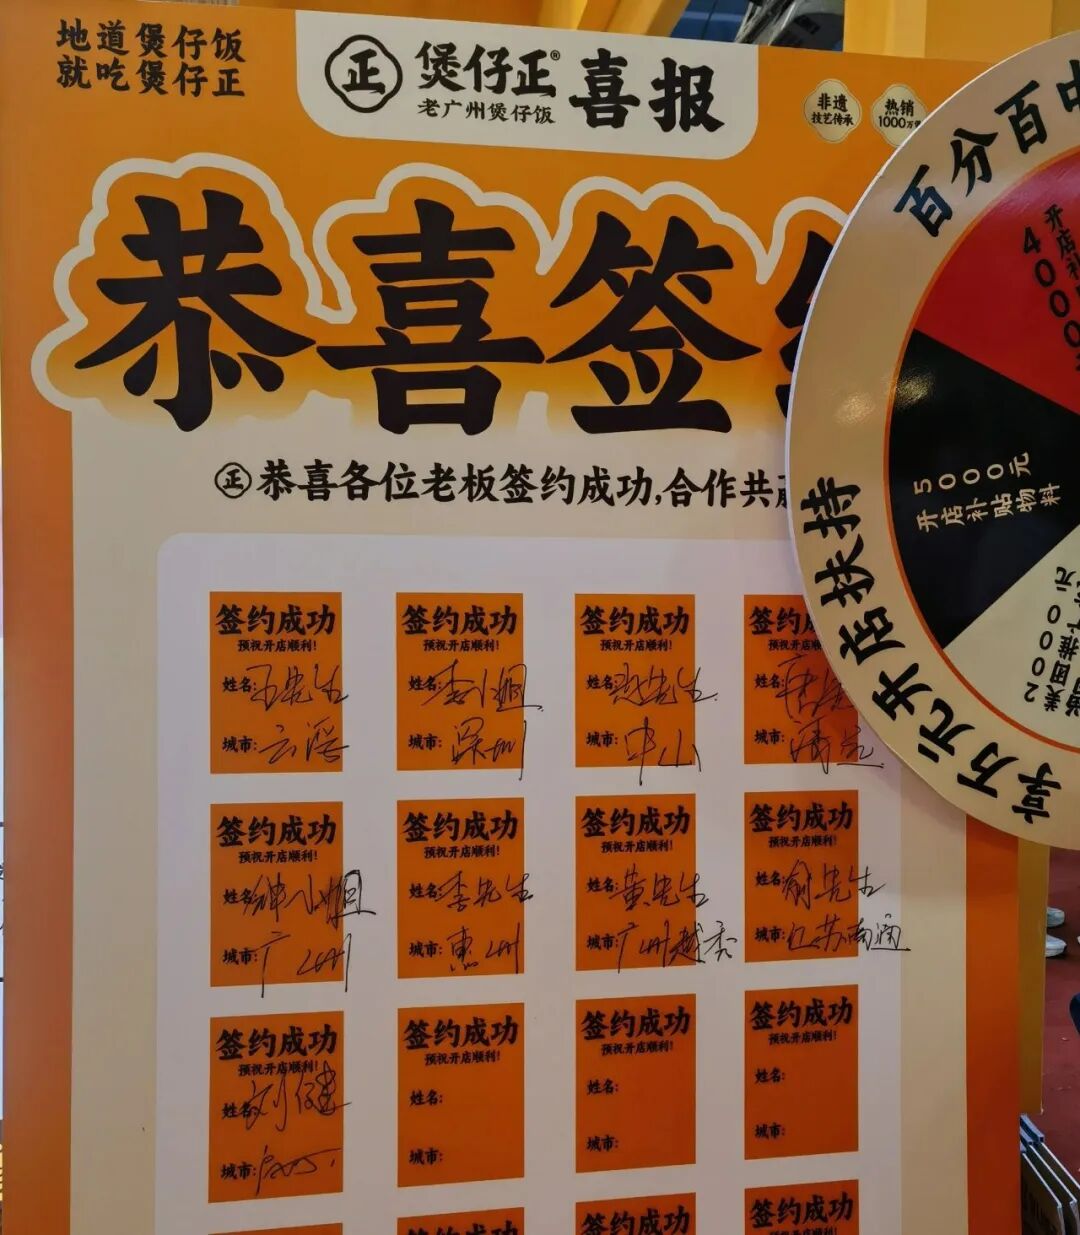 地道煲仔饭
就吃煲仔正
正
煲仔正®
老广州煲仔饭
喜报
非遗
技艺传承
热销
1000万
恭喜签
正 恭喜各位老板签约成功,合作共
百分百中
享万元开店扶持
开店补
4000元
5000元
开店补贴物料
2000元
美团推广
签约成功
预祝开店顺利!
姓名:王先生
城市:云浮
签约成功
预祝开店顺利!
姓名:李小姐
城市:深圳
签约成功
预祝开店顺利!
姓名:先生
城市:中山
签约成
预祝开店顺
姓名:
城市:清远
签约成功
预祝开店顺利!
姓名:钟小姐
城市:广州
签约成功
预祝开店顺利!
姓名:李先生
城市:惠州
签约成功
预祝开店顺利!
姓名:黄先生
城市:广州越秀
签约成功
预祝开店顺利!
姓名:俞先生
城市:江苏南通
签约成功
预祝开店顺利!
姓名:刘健
城市:
签约成功
预祝开店顺利!
姓名:
城市:
签约成功
预祝开店顺利!
姓名:
城市:
签约成功
预祝开店顺利!
姓名:
城市:
签约成功
签约成功
签约成功